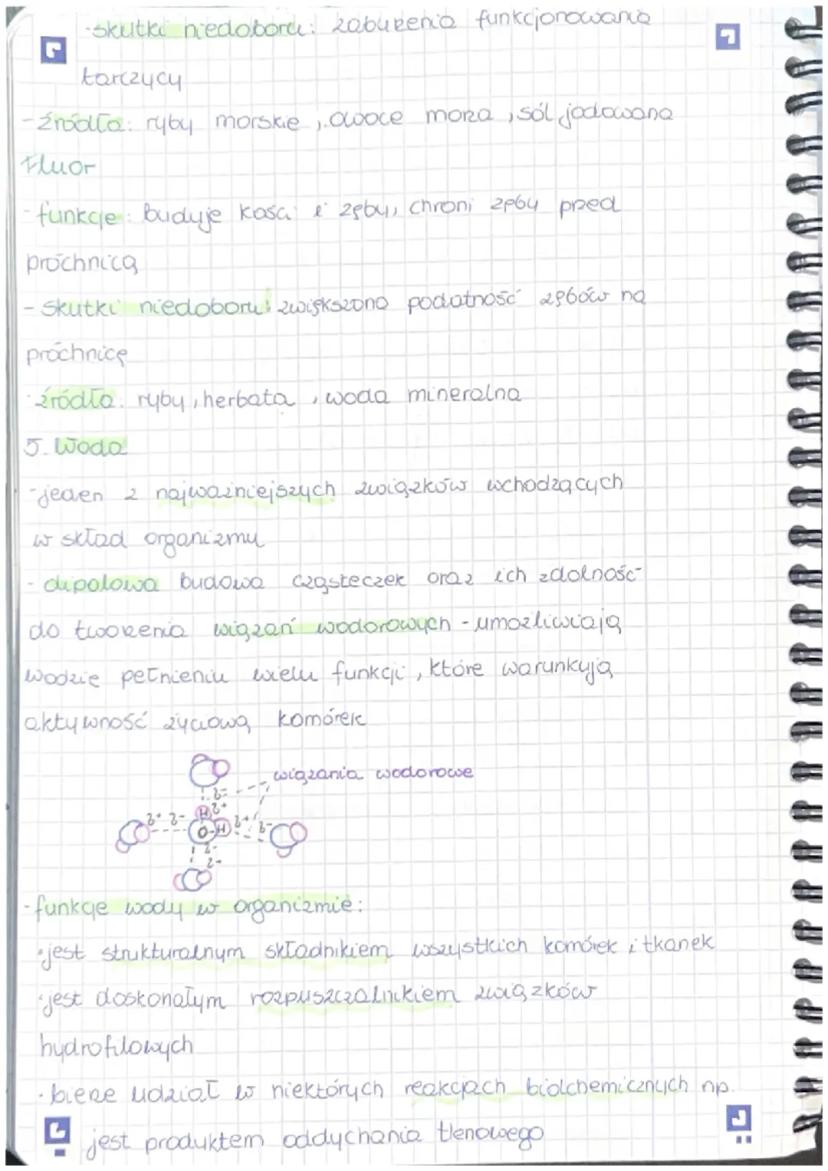 -skutki niedoboru: zaburzenia funkcjonowania
tarczycy
-źródła: ryby morskie, owoce morza, sól jodowana
Fluor
-funkcje: buduje kości i zęby, chroni zęby przed
próchnicą
-skutki niedoboru: zwiększona podatność zębów na
próchnicę
-źródła: ryby, herbata, woda mineralna
5. Woda
-jeden z najważniejszych związków wchodzących
w skład organizmu
-dipolowa budowa cząsteczek oraz ich zdolność
do tworzenia wiązań wodorowych - umożliwiają
wodzie pełnieniu wielu funkcji, które warunkują
aktywność życiową komórek
wiązania wodorowe
δ-
H δ+
δ+ δ- O-H δ+ δ-
δ-
δ+
-funkcje wody w organizmie:
•jest strukturalnym składnikiem wszystkich komórek i tkanek
•jest doskonałym rozpuszczalnikiem związków
hydrofilowych
•bierze udział w niektórych reakcjach biochemicznych np.
jest produktem oddychania tlenowego